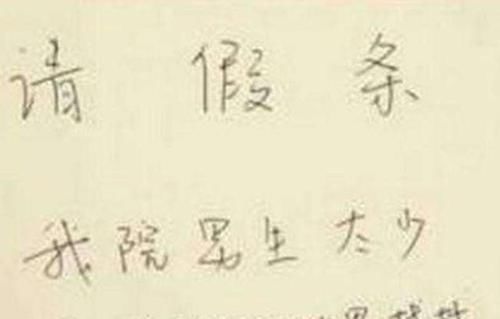 请假条
我院男生太少